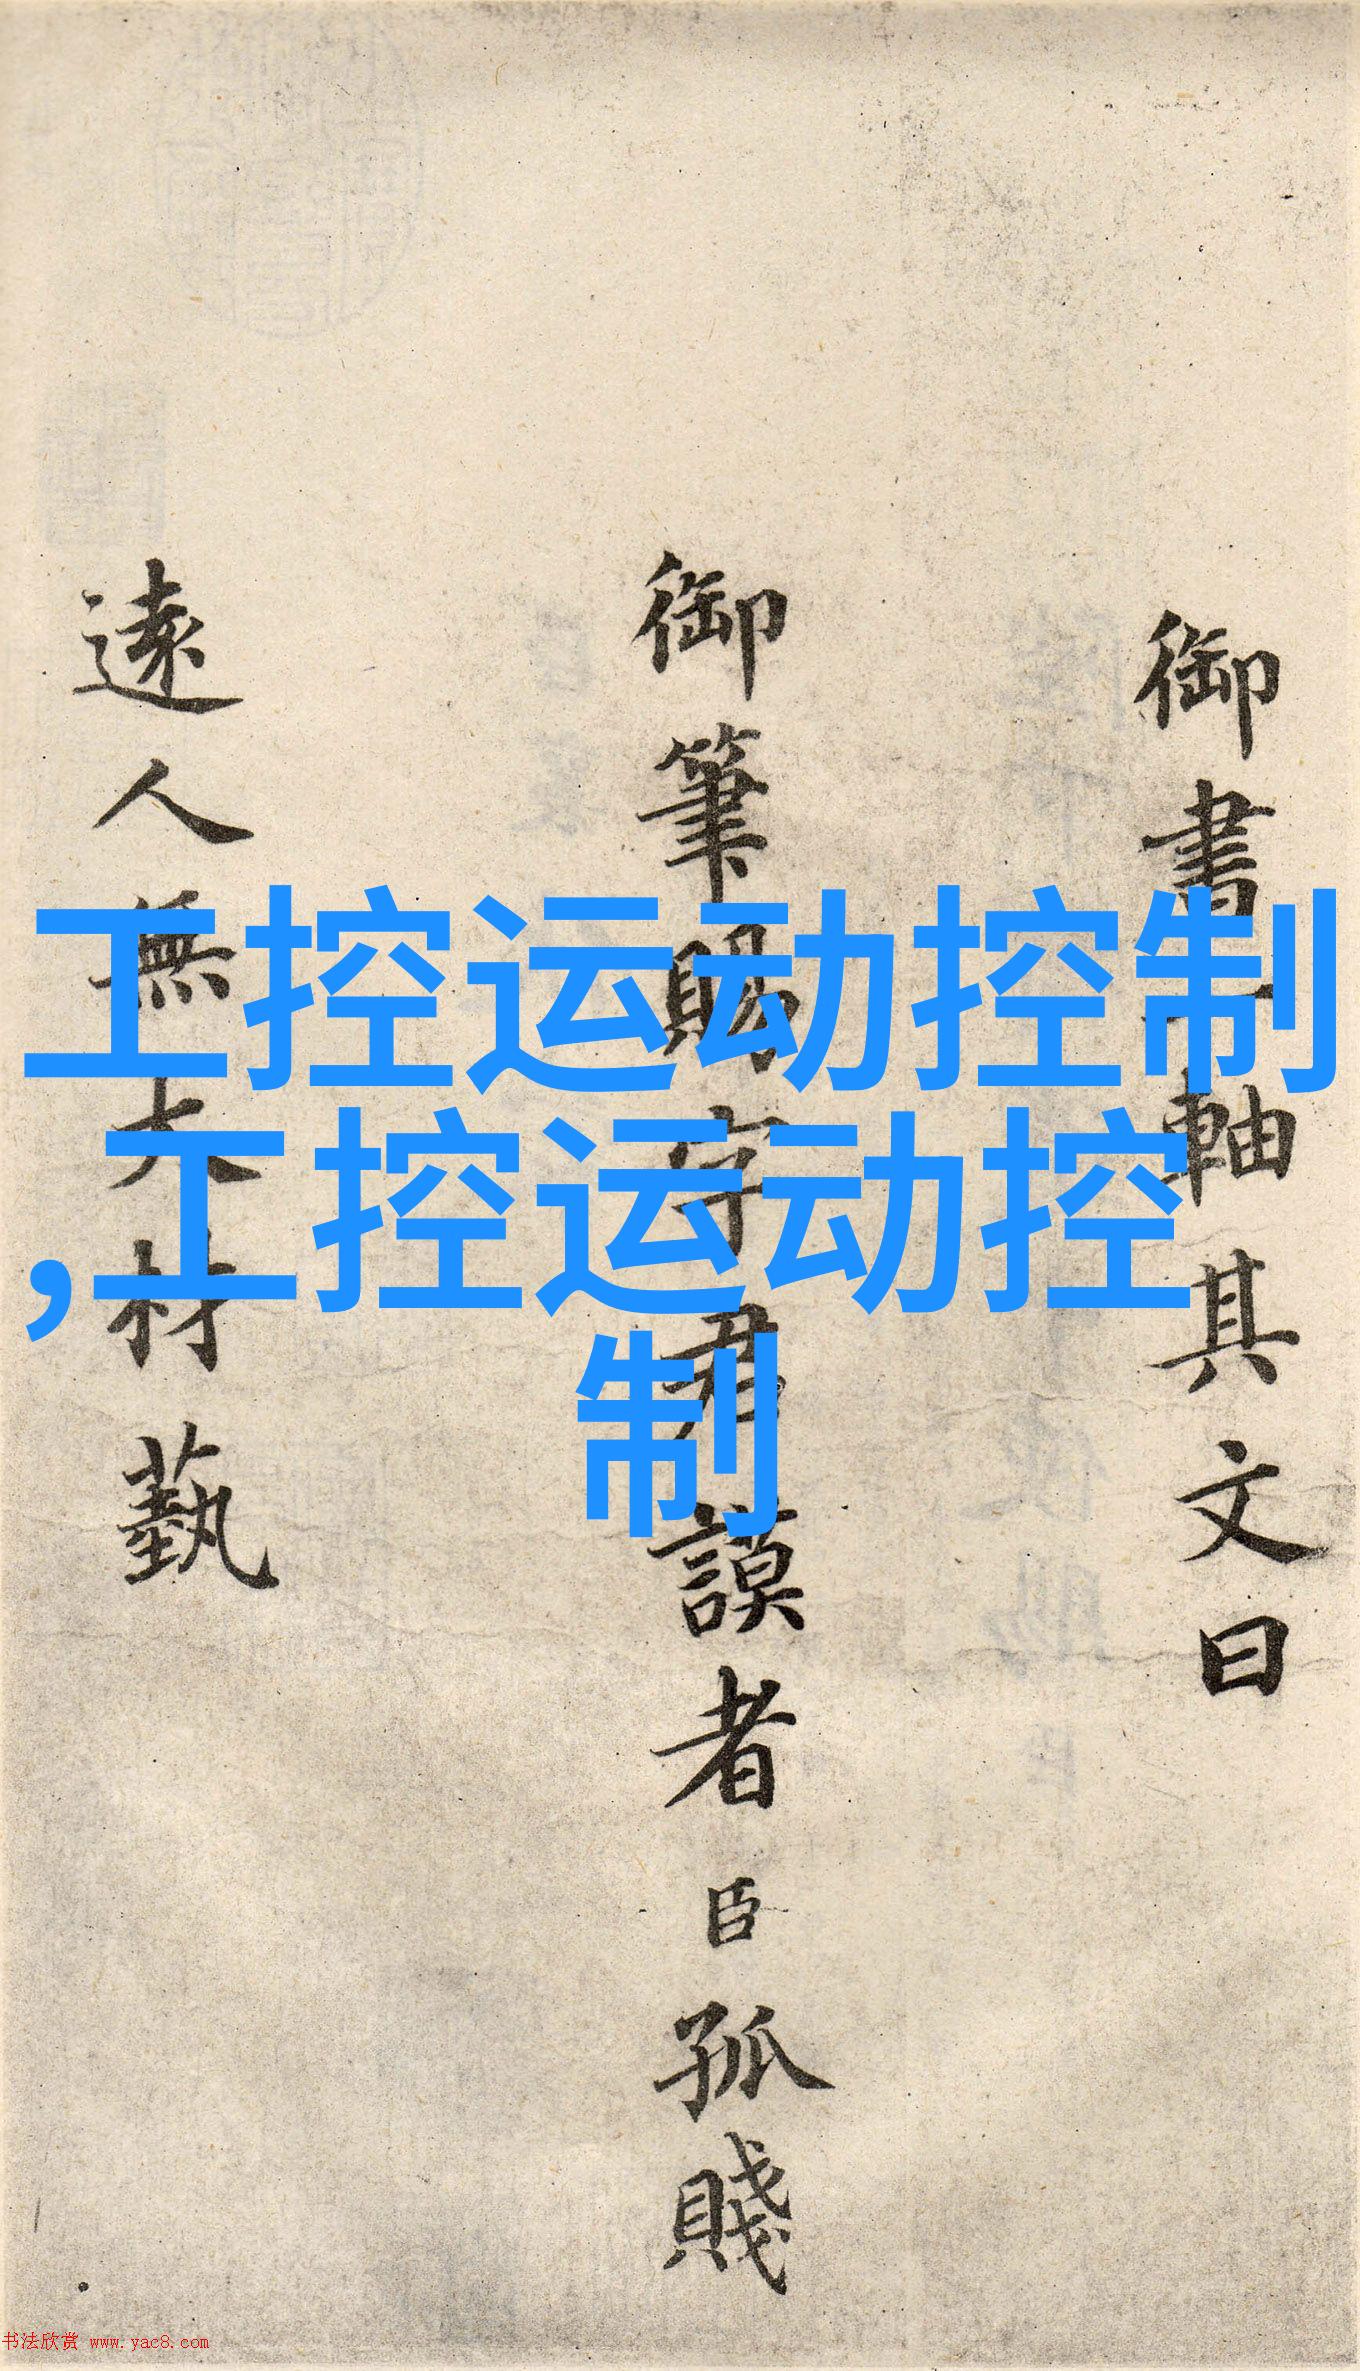 御書一軸其文曰
御筆賜字君謨者臣孤賤
遠人無大材藝
工控运动控制
,工控运动控
制
书法欣赏 www.yac8.com